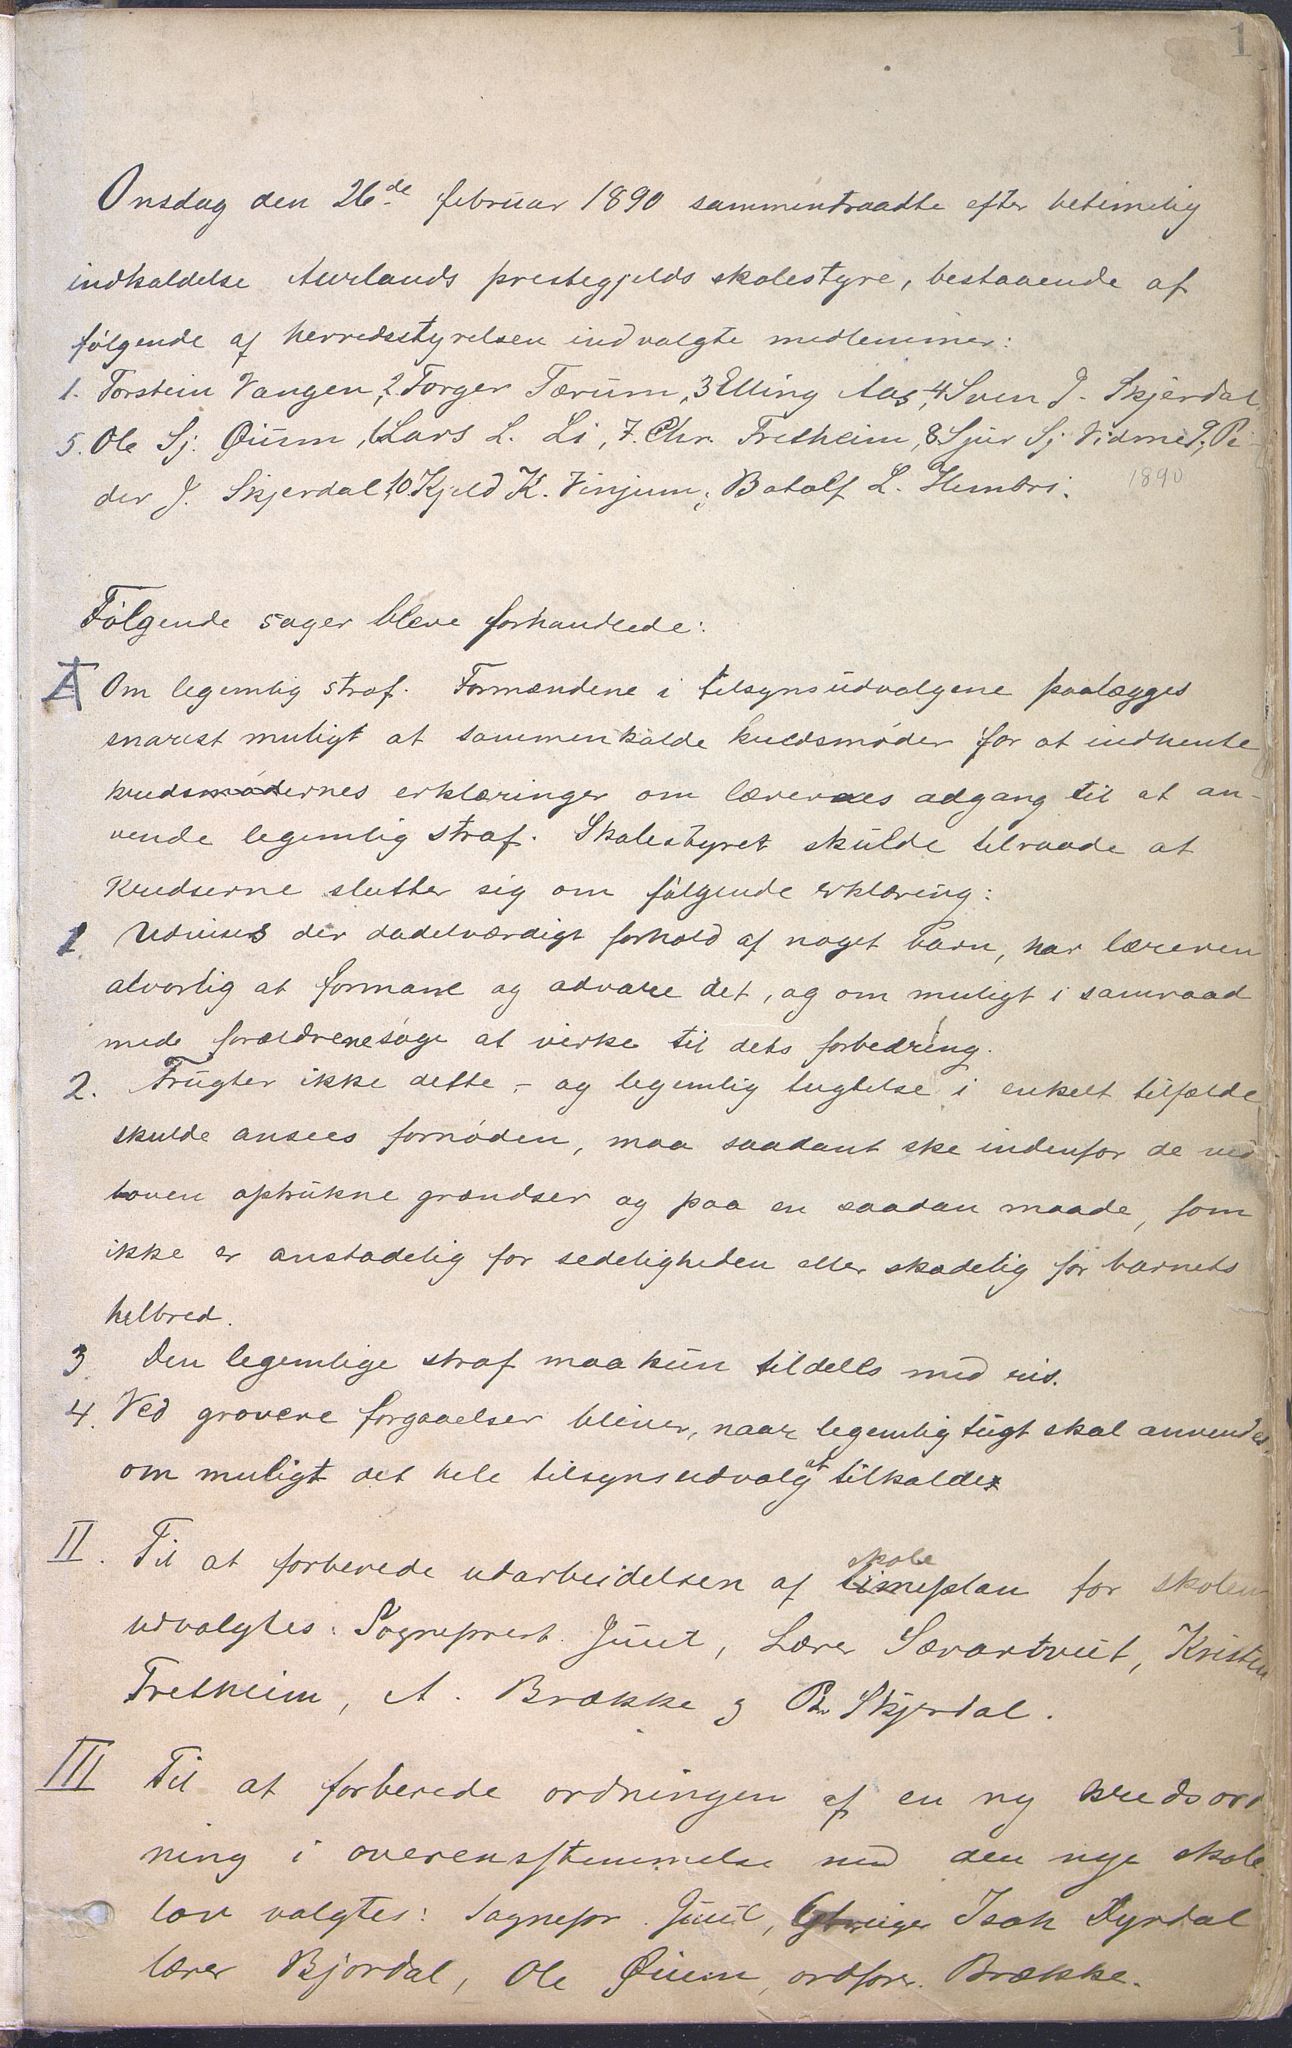 1
Onsdag den 26de februar 1890 sammentraadte efter betimelig
indkaldelse Aurlands prestegjelds skolestyre, bestaaende af
følgende af herredsstyrelsen indvalgte medlemmer:
1. Torstein Vangen, 2 Torger Tærum, 3 Elling Aas, 4 Sven J. Skjerdal
5. Ole Sj. Øium, 6 Lars L. Li, 7. Chr. Fretheim, 8 Sjur Sj Vidme, 9, Pe
der J. Skjerdal, 10 Kjeld K. Vinjum, Botolf L. Humbri.
1890
Følgende sager bleve forhandlede:
I Om legemlig straf. Formændene i tilsynsudvalgene paalægges
snarest muligt at sammenkalde kredsmøder for at indhente
kredsmødernes erklæringer om lærernes adgang til at an-
vende legemlig straf. Skolestyret skulde tilraade at
Kredserne slutter sig om følgende erklæring:
1. Udvises der dadelværdigt forhold af noget barn, har læreren
alvorlig at formane og advare det, og om muligt i samraad
med forældrene søge at virke til dets forbedring.
2. Frugter ikke dette – og legemlig tugtelse i enkelt tilfælde
skulde ansees fornøden, maa saadant ske indenfor de ved
loven optrukne grændser og paa en saadan maade, som
ikke er anstødelig for sedeligheden eller skadelig for barnets
helbred.
3. Den legemlige straf maa kun tildeles med ris.
4. Ved grovere forgaaelser bliver, naar legemlig tugt skal anvendes,
om muligt det hele tilsynsudvalg at tilkalde
II. Til at forberede udarbeidelsen af skoleplan for skolen
udvalgtes: Sogneprest Juul, Lærer Sævartveit, Kristen
Fretheim, A. Brække og Pr. Skjerdal.
III Til at forberede ordningen af en ny kredsord
ning i overensstemmelse med den nye skole
lov valgtes: Sognepr. Juul, Isak Dyrdal
lærer Bjordal, Ole Øium, ordfører Brække.